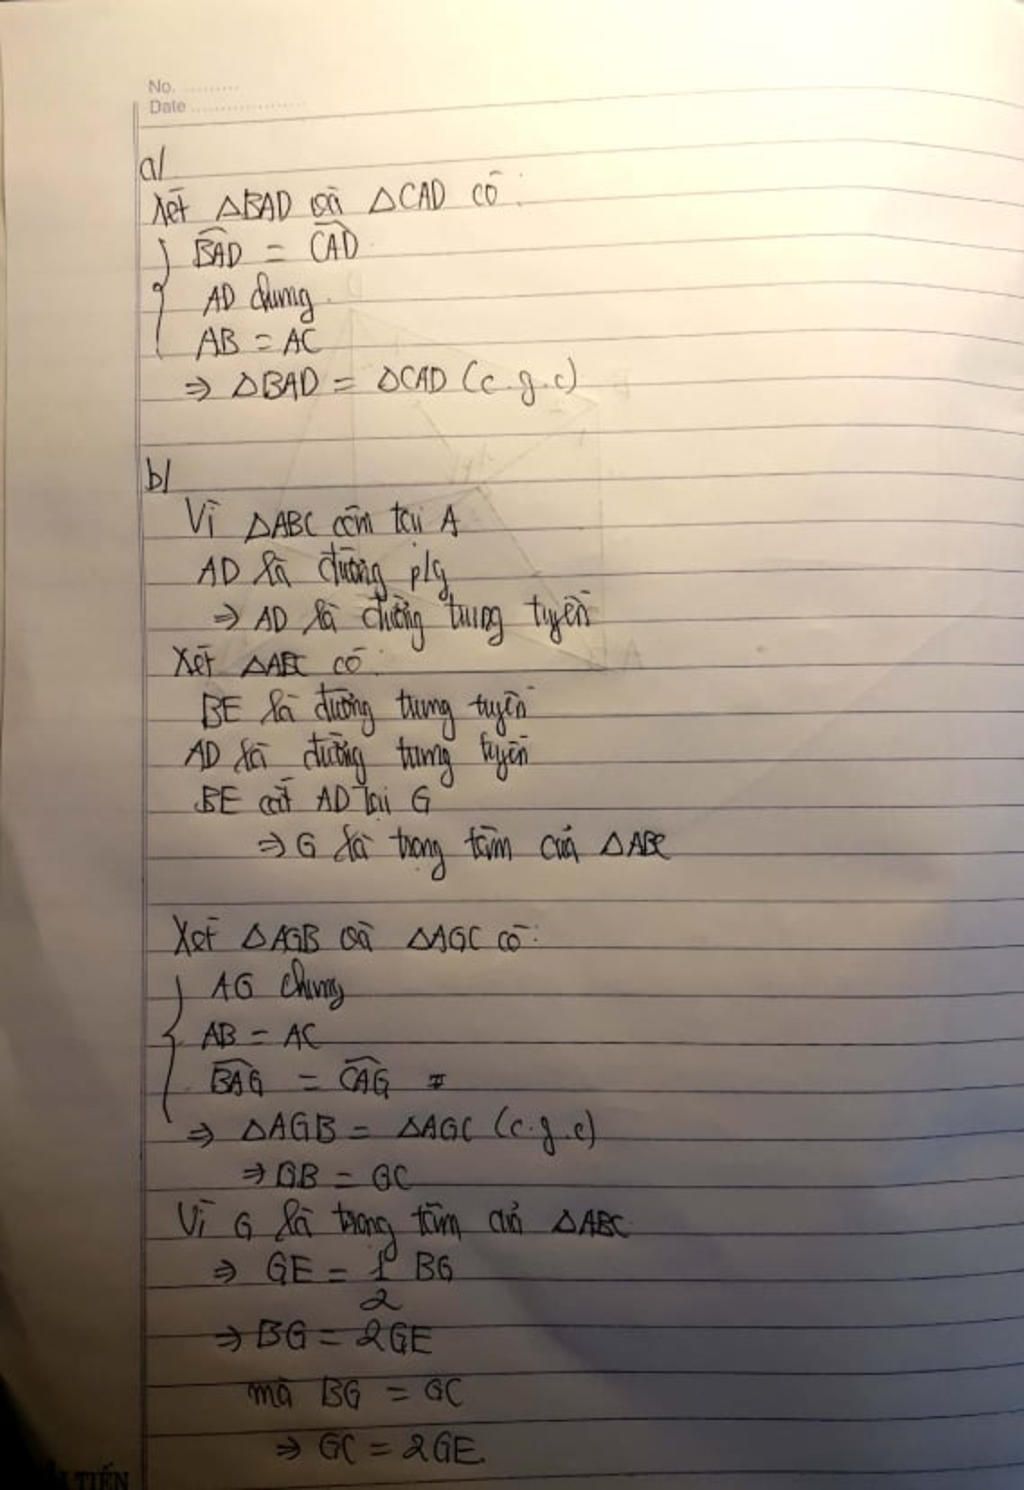 No. ..........
Date ....................
a/
Xét △BAD và △CAD có:
{ \widehat{BAD} = \widehat{CAD}
AD chung
AB = AC
⇒ △BAD = △CAD (c.g.c)
b/
Vì △ABC cân tại A
AD là đường p/g
⇒ AD là đường trung tuyến
Xét △ABC có:
BE là đường trung tuyến
AD là đường trung tuyến
BE cắt AD tại G
⇒ G là trọng tâm của △ABC
Xét △AGB và △AGC có:
{ AG chung
AB = AC
\widehat{BAG} = \widehat{CAG}
⇒ △AGB = △AGC (c.g.c)
⇒ GB = GC
Vì G là trọng tâm của △ABC
⇒ GE = 1/2 BG
⇒ BG = 2GE
mà BG = GC
⇒ GC = 2GE.
TIẾN